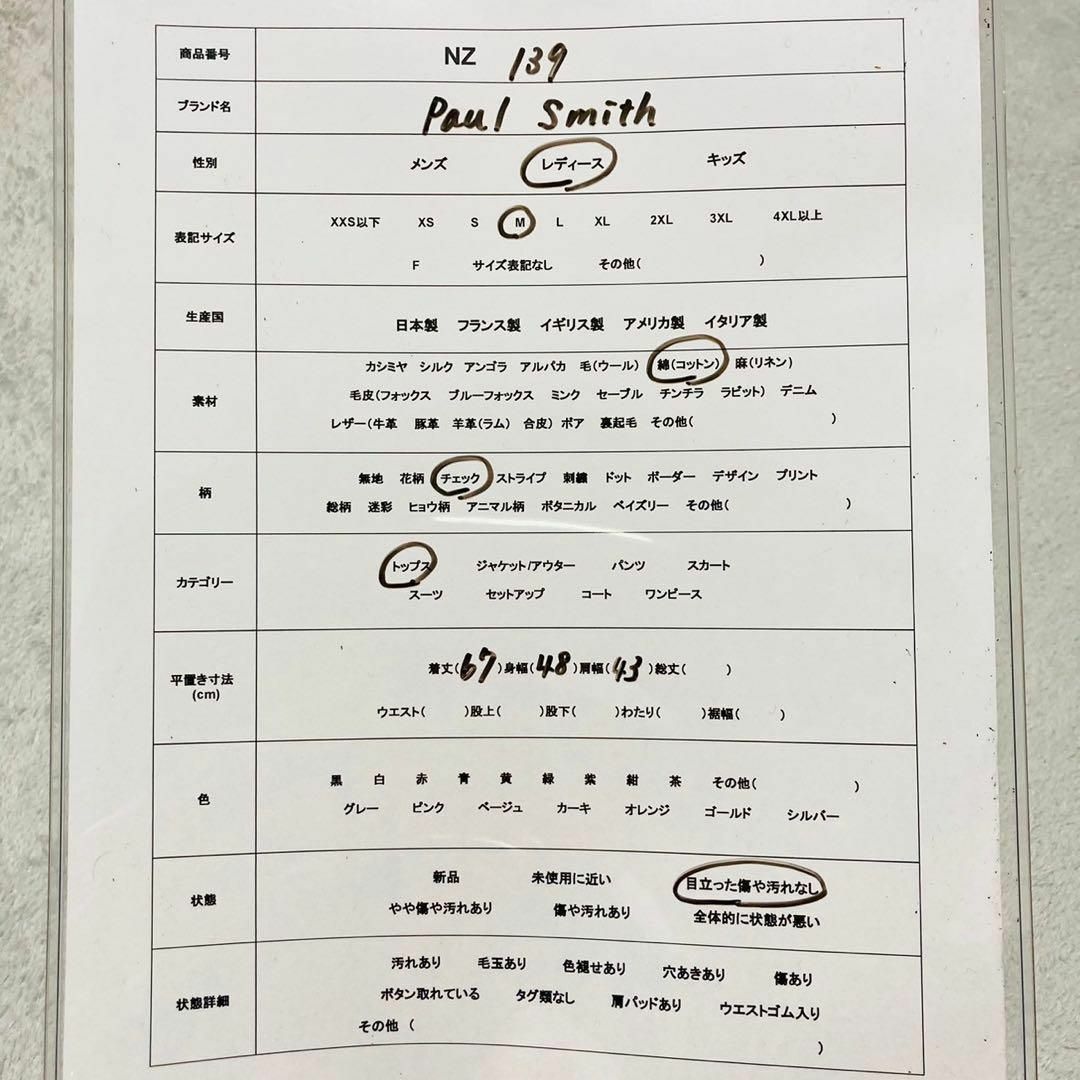 商品番号 NZ 139
ブランド名 Paul Smith
性別 メンズ レディース キッズ
表記サイズ XXS以下 XS S M L XL 2XL 3XL 4XL以上
F サイズ表記なし その他( )
生産国 日本製 フランス製 イギリス製 アメリカ製 イタリア製
素材 カシミヤ シルク アンゴラ アルパカ 毛(ウール) 綿(コットン) 麻(リネン)
毛皮(フォックス ブルーフォックス ミンク セーブル チンチラ ラビット) デニム
レザー(牛革 豚革 羊革(ラム) 合皮) ボア 裏起毛 その他( )
柄 無地 花柄 チェック ストライプ 刺繍 ドット ボーダー デザイン プリント
総柄 迷彩 ヒョウ柄 アニマル柄 ボタニカル ペイズリー その他( )
カテゴリー トップス ジャケット/アウター パンツ スカート
スーツ セットアップ コート ワンピース
平置き寸法 (cm) 着丈(67)身幅(48)肩幅(43)総丈( )
ウエスト( )股上( )股下( )わたり( )裾幅( )
色 黒 白 赤 青 黄 緑 紫 紺 茶 その他( )
グレー ピンク ベージュ カーキ オレンジ ゴールド シルバー
状態 新品 未使用に近い 目立った傷や汚れなし
やや傷や汚れあり 傷や汚れあり 全体的に状態が悪い
状態詳細 汚れあり 毛玉あり 色褪せあり 穴あきあり 傷あり
ボタン取れている タグ類なし 肩パッドあり ウエストゴム入り
その他 ( )